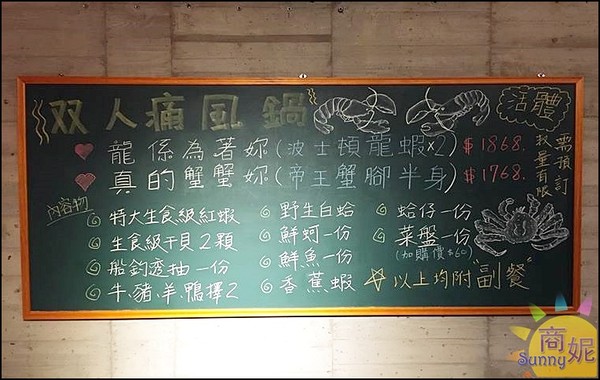 双人痛風鍋
龍係為著妳(波士頓龍蝦×2) $1868.
真的蟹蟹妳(帝王蟹腳半身) $1768.
活體
需預訂
數量有限
內容物
特大生食級紅蝦
生食級干貝2顆
船釣透抽一份
牛.豬.羊.鴨擇2
野生白蛤
鮮蚵一份
鮮魚一份
香蕉蝦
蛤仔一份
菜盤一份
(加購價$60)
以上均附"副餐"
商妮
Sunny